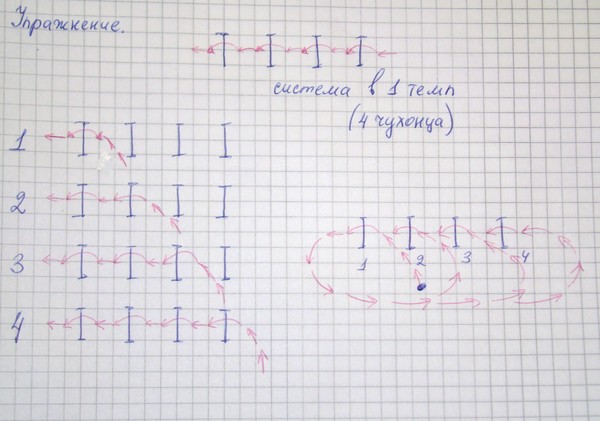 Упражнение.
система в 1 темп
(4 чухонца)
1
2
3
4
1 2 3 4